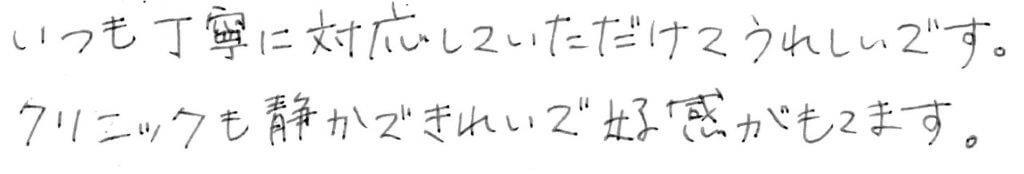 いつも丁寧に対応していただけてうれしいです。
クリニックも静かできれいで好感がもてます。